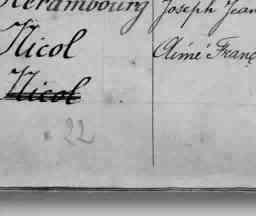 Kerambourg Joseph Jean
Nicol Aimé Franç
Nicol
22